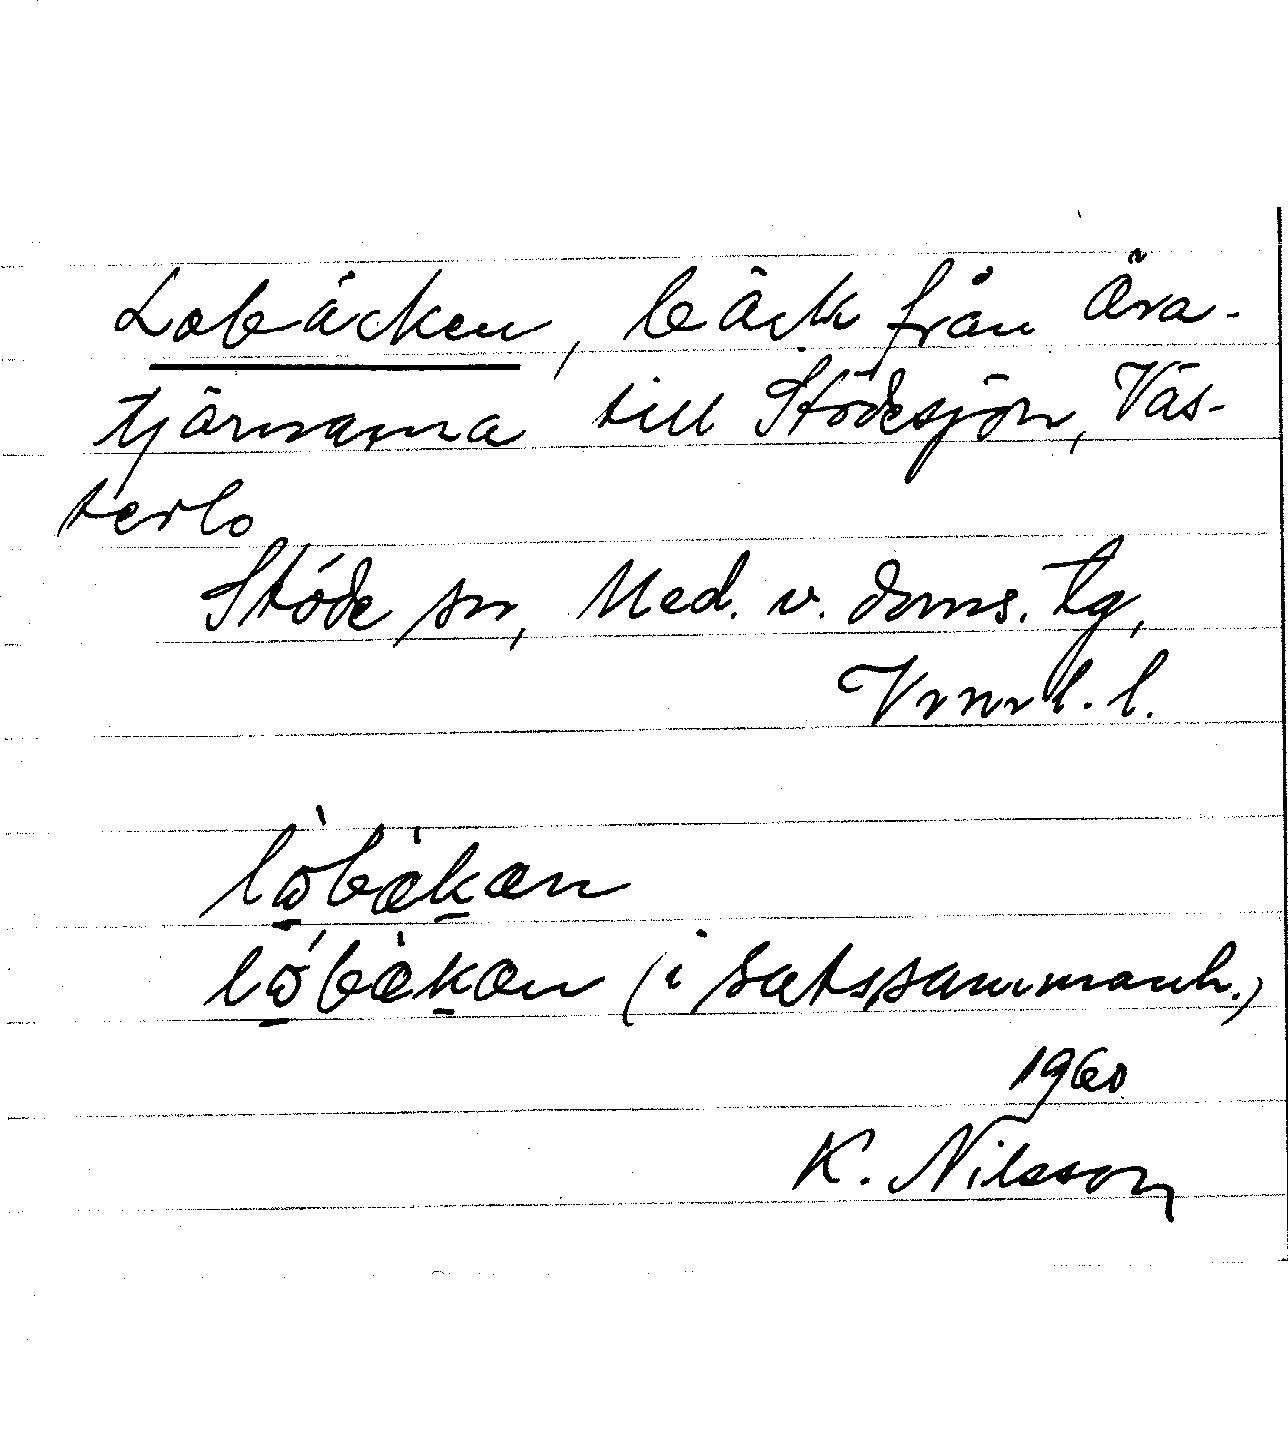 Lobäcken, bäck från Öra-
tjärnarna till Stödesjön, Väs-
terlo
Stöde sn, Med. v. doms. tg,
Vrnrl. l.
lòbækæn
lóbækæn (i satssammanh.)
1960
K. Nilsson